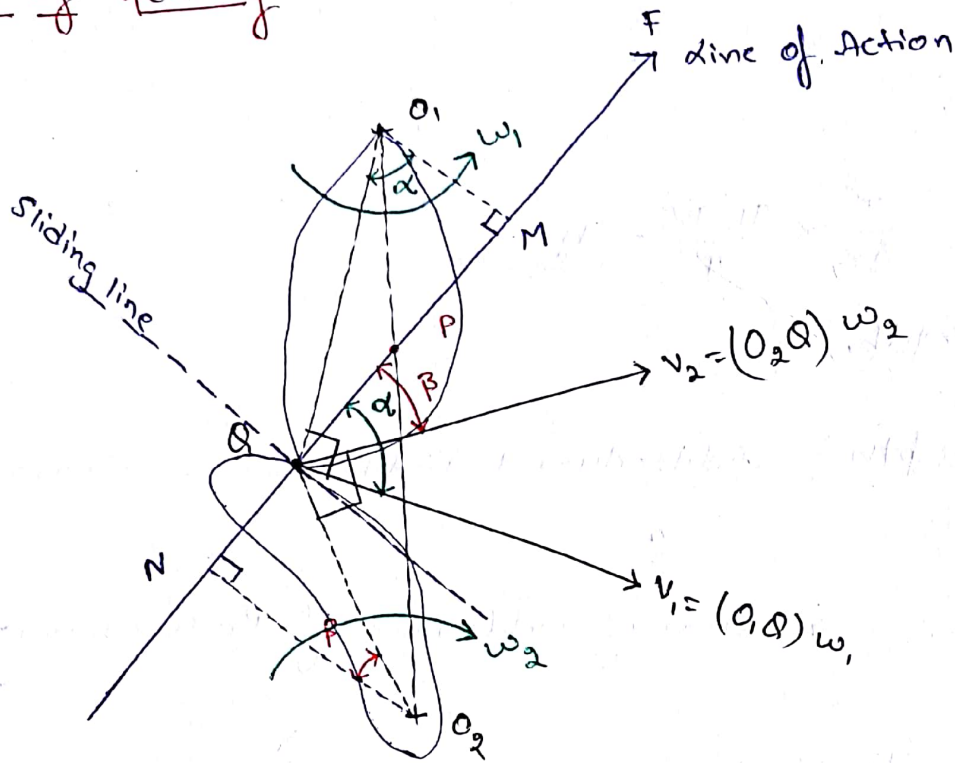 F
Line of Action
O₁
ω₁
α
M
Sliding line
P
V₂=(O₂Q) ω₂
β
α
Q
N
V₁= (O₁Q) ω₁
β
ω₂
O₂